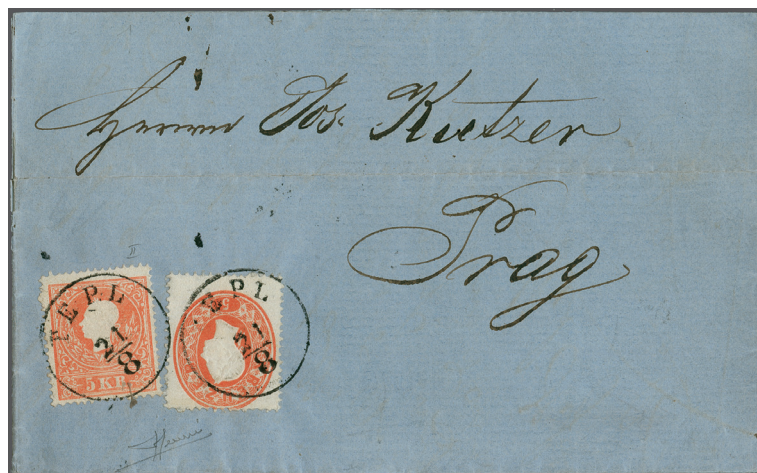 Herrn Jos. Kietzer
Prag
II
TEPL
21/8
5 KR
TEPL
21/8
5